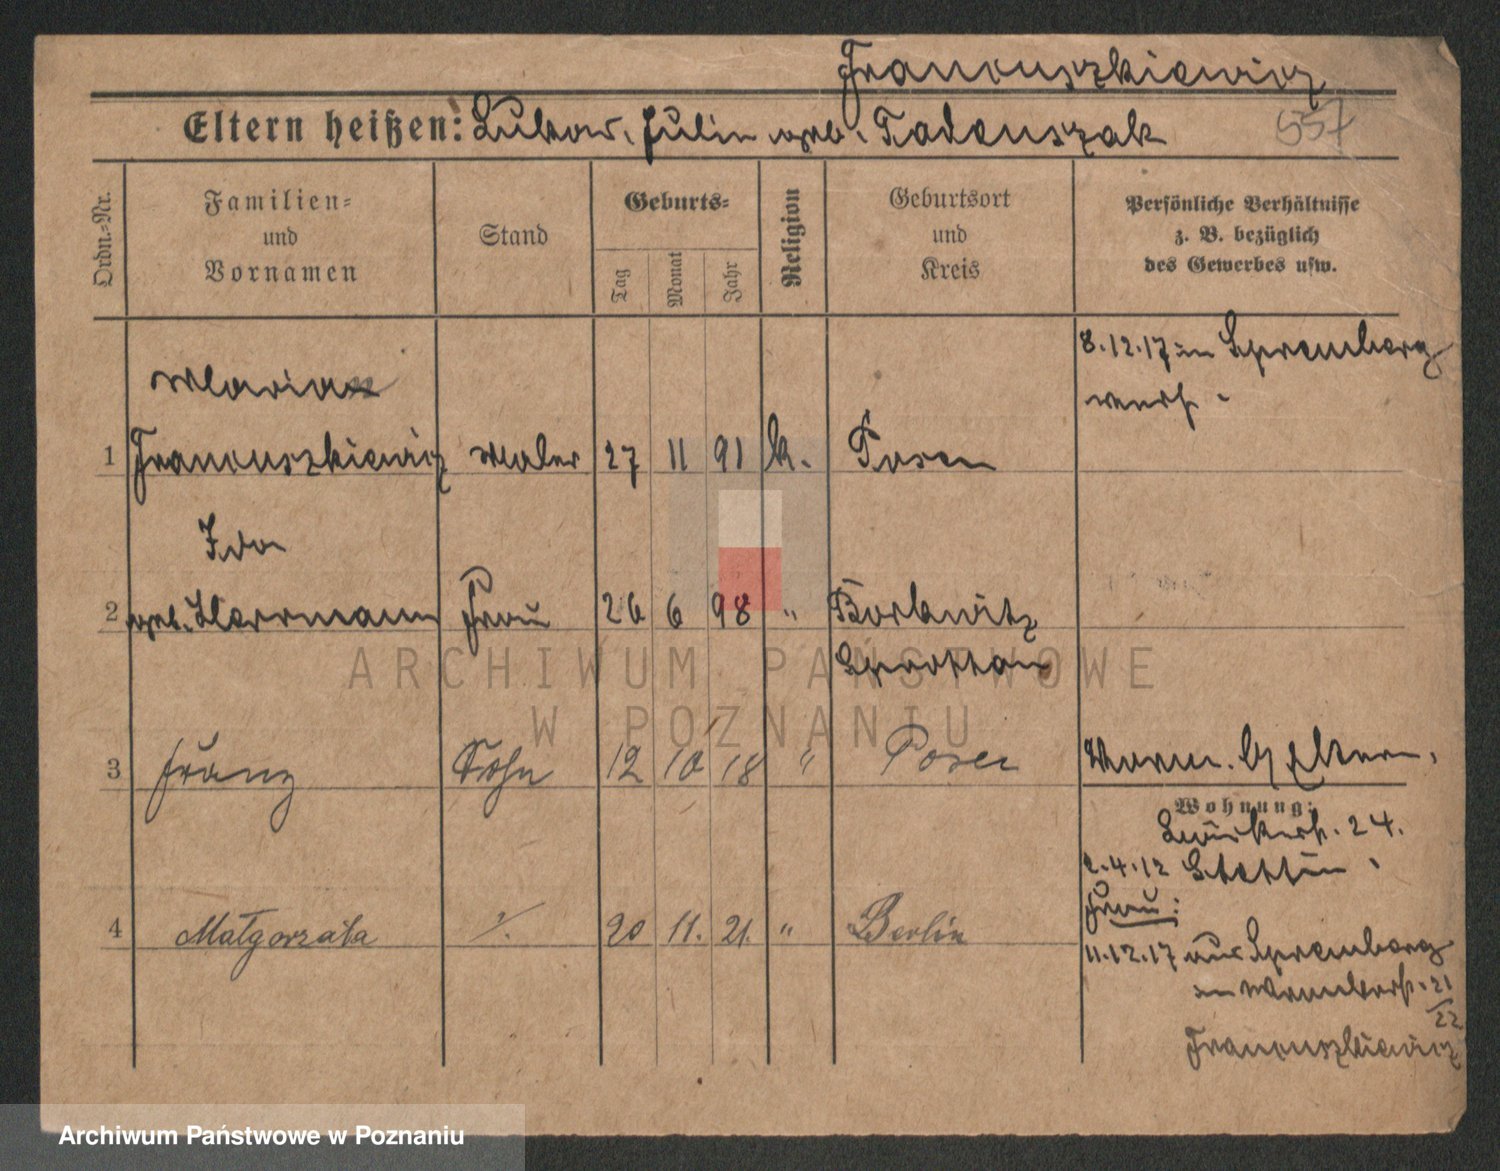 Francuszkiewicz
557
Eltern heißen: Lukas, Julia geb. Tadeuszak
Ordn.-Nr.
Familien-
und
Vornamen
Stand
Geburts-
Tag
Monat
Jahr
Religion
Geburtsort
und
Kreis
Persönliche Verhältnisse
z. B. bezüglich
des Gewerbes usw.
8.12.17 in Spremberg
verh.
Marian
1 Francuszkiewicz Maler 27 11 91 k. Posen
Ida
2 geb. Herrmann Frau 26 6 98 " 
Sprottau
3 Franz Sohn 12 10 18 " Posen
Eltern,
Wohnung:
24.
2.4.12 Stettin
4 Małgorzata 20 11. 21. " Berlin
Frau:
11.12.17 aus Spremberg
in 21
22
Francuszkiewicz
ARCHIWUM PAŃSTWOWE
W POZNANIU
Archiwum Państwowe w Poznaniu